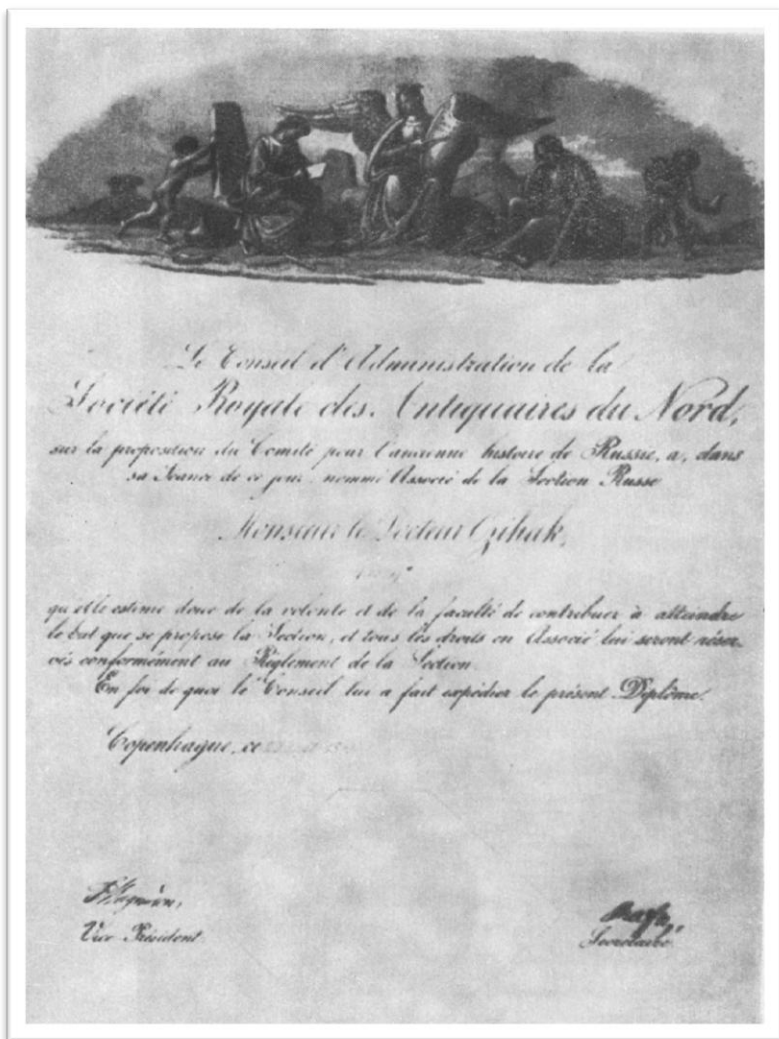 Le Conseil d'Administration de la
Société Royale des Antiquaires du Nord,
sur la proposition du Comité pour l'ancienne histoire de Russie, a, dans
sa Séance de ce jour nommé Associé de la Section Russe
Monsieur le Docteur Czihak,
qu'elle estime doué de la volonté et de la faculté de contribuer à atteindre
le but que se propose la Section, et tous les droits en Associé lui seront réser-
vés conformément au Règlement de la Section.
En foi de quoi le Conseil lui a fait expédier le présent Diplôme.
Copenhague, ce
Vice Président.
Rafn,
Secrétaire.